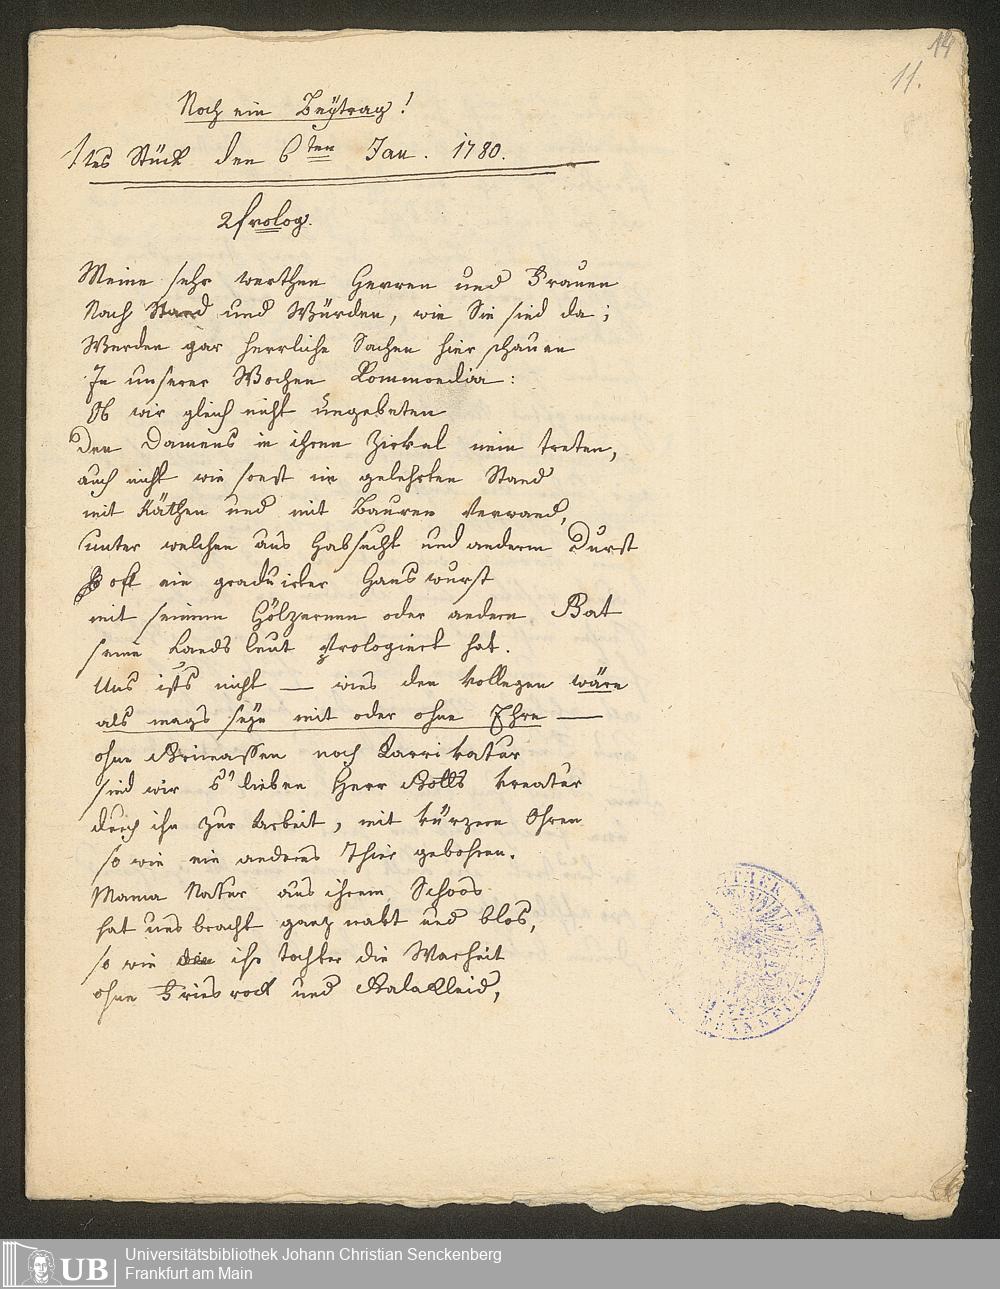 14
11.
Noch ein Beÿtrag!
1tes Stück den 6ten Jan. 1780.
Prolog.
Meine sehr werthen Herren und Frauen
Nach Stand und Würden, wie Sie sind da;
Werden gar herrliche Sachen hier schauen
In unserer Wochen Kommoedia:
Ob wir gleich nicht ungebeten
Den Damens in ihren Zirkel nein treten,
auch nicht wie sonst im gelehrten Stand
mit Räthen und mit Bauren verwand,
unter welchen aus Habsucht und anderm Durst
oft ein graduirter Hanswurst
mit seinem Hölzernen oder andern Bat
seine Landsleut prologiert hat.
Uns ists nicht — wies den Kollegen wäre
als mags seÿn mit oder ohne Ehre —
ohne Grimassen noch Karrikatur
sind wir s' lieben Herr Gotts Kreatur
durch ihn zur Arbeit, mit kürzern Ohren
so wie ein anderes Thier gebohren.
Mama Natur aus ihrem Schoos
hat uns bracht gantz nakt und blos,
so wie ihr Tochter die Warheit
ohne Friesrock und Galakleid,
UB
Universitätsbibliothek Johann Christian Senckenberg
Frankfurt am Main